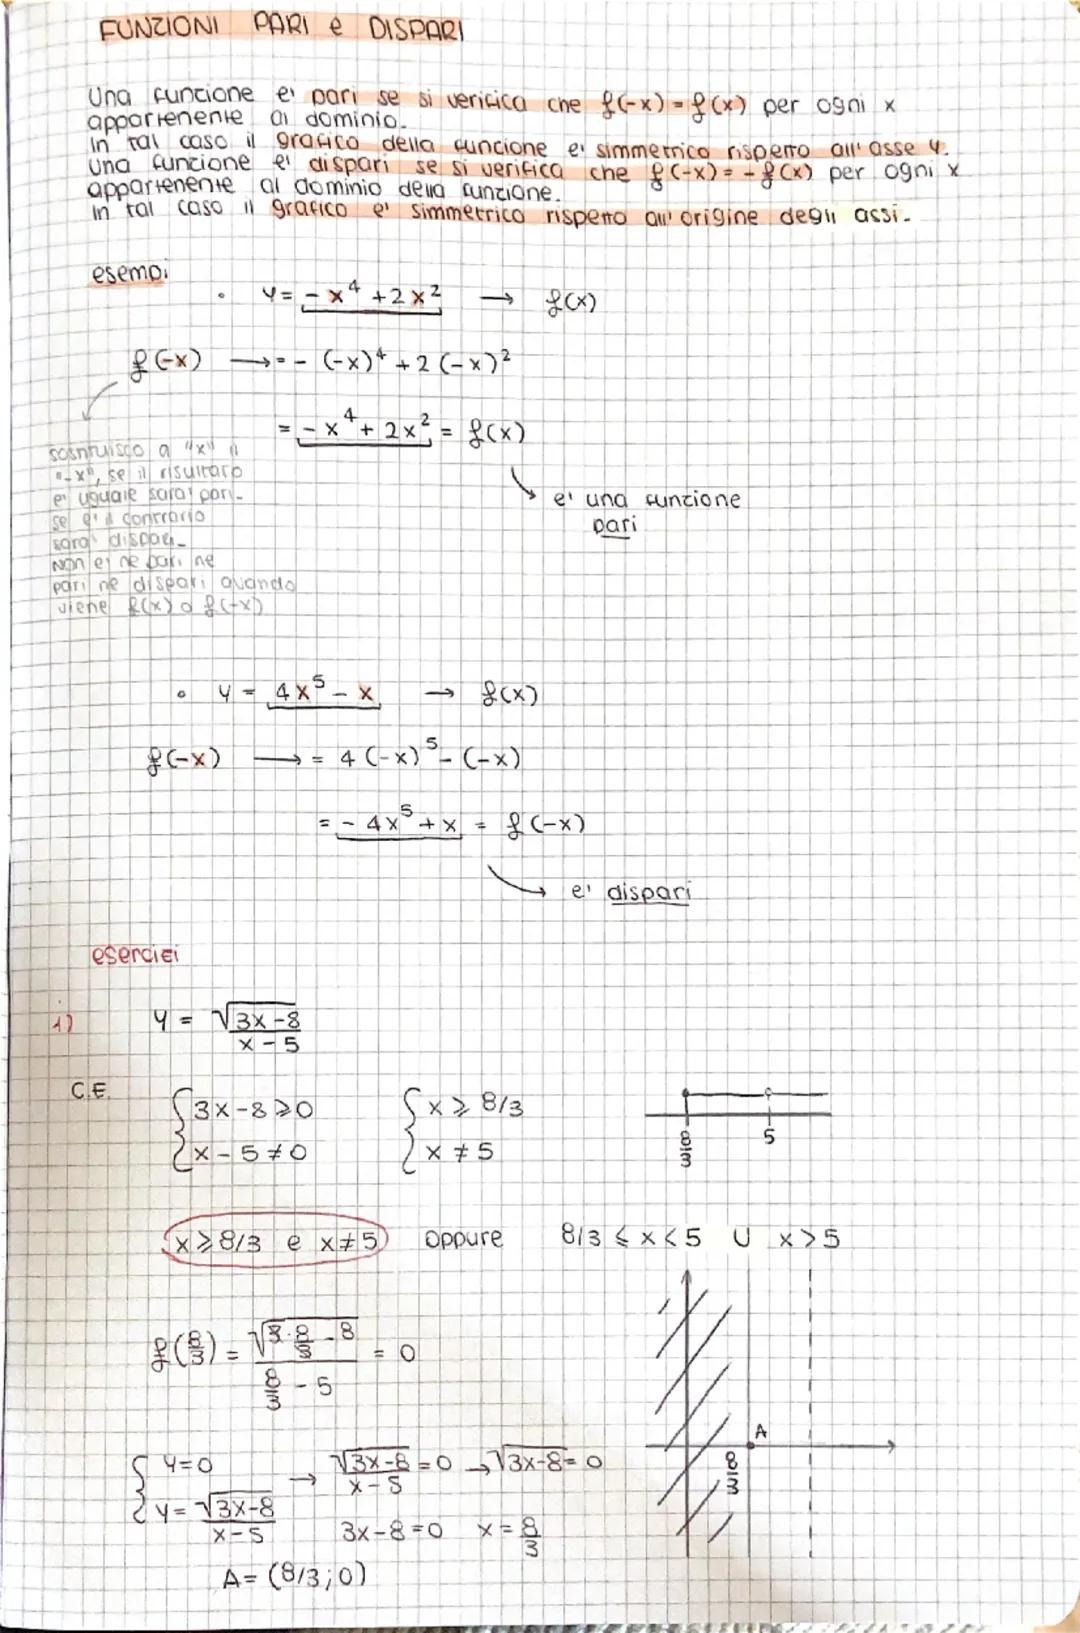 FUNZIONI PARI e DISPARI
Una funzione e' pari se si verifica che f(-x) = f(x) per ogni x
appartenente al dominio.
In tal caso il grafico della funzione e' simmetrico rispetto all'asse y.
Una funzione e' dispari se si verifica che f(-x) = - f(x) per ogni x
appartenente al dominio della funzione.
In tal caso il grafico e' simmetrico rispetto all'origine degli assi.
esempi
• y = - x⁴ + 2x² → f(x)
f(-x) → = - (-x)⁴ + 2(-x)²
= - x⁴ + 2x² = f(x)
sostituisco a "x" il
"-x", se il risultato
e' uguale sara' pari.
se e' il contrario
sara' dispari.
Non e' ne pari ne
pari ne dispari quando
viene f(x) o f(-x)
e' una funzione
pari
• y = 4x⁵ - x → f(x)
f(-x) → = 4(-x)⁵ - (-x)
= - 4x⁵ + x = f(-x)
e' dispari
esercizi
1) y = √(3x-8) / (x-5)
C.E. { 3x-8 ⩾ 0 { x ⩾ 8/3
{ x - 5 ≠ 0 { x ≠ 5
8/3 5
x ⩾ 8/3 e x ≠ 5 oppure 8/3 ⩽ x < 5 U x > 5
f(8/3) = √(3·8/3 - 8) / (8/3 - 5) = 0
{ y=0 → √(3x-8) / (x-5) = 0 → √(3x-8) = 0
{ y = √(3x-8) / (x-5) 3x-8=0 x = 8/3
A = (8/3; 0)
A
8/3